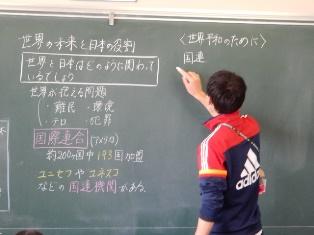 世界の未来と日本の役割
世界と日本はどのように関わって
いるでしょう
世界が抱える問題
・難民 ・環境
・テロ ・犯罪
国際連合(アメリカ)
約200ヵ国中193国加盟
ユニセフやユネスコ
などの国連機関がある。
〈世界平和のために〉
国連
adidas